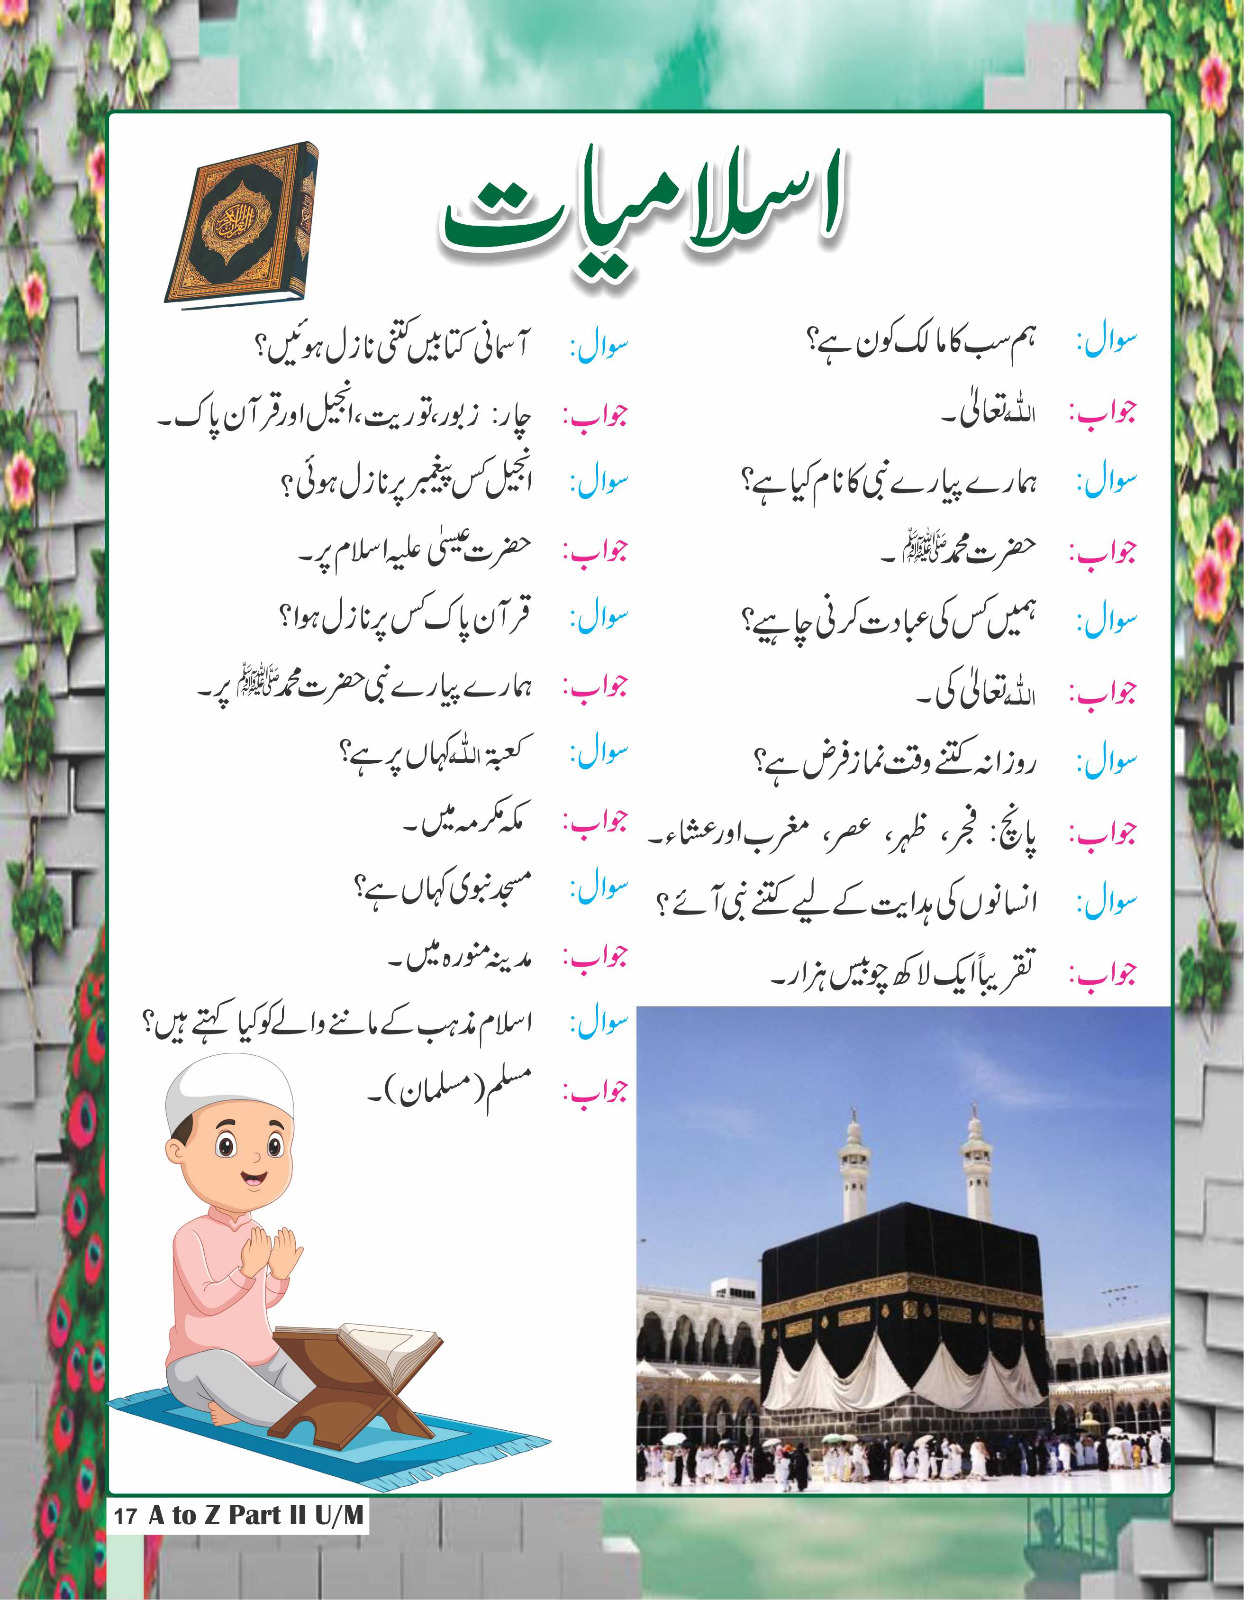 اسلامیات
سوال: ہم سب کا مالک کون ہے؟
جواب: اللہ تعالیٰ۔
سوال: ہمارے پیارے نبی کا نام کیا ہے؟
جواب: حضرت محمد ﷺ ۔
سوال: ہمیں کس کی عبادت کرنی چاہیے؟
جواب: اللہ تعالیٰ کی۔
سوال: روزانہ کتنے وقت نماز فرض ہے؟
جواب: پانچ: فجر، ظہر، عصر، مغرب اور عشاء۔
سوال: انسانوں کی ہدایت کے لیے کتنے نبی آئے ؟
جواب: تقریباً ایک لاکھ چوبیس ہزار۔
سوال: آسمانی کتابیں کتنی نازل ہوئیں؟
جواب: چار: زبور، توریت، انجیل اور قرآن پاک۔
سوال: انجیل کس پیغمبر پر نازل ہوئی؟
جواب: حضرت عیسیٰ علیہ اسلام پر۔
سوال: قرآن پاک کس پر نازل ہوا؟
جواب: ہمارے پیارے نبی حضرت محمد ﷺ پر۔
سوال: کعبۃ اللہ کہاں پر ہے؟
جواب: مکہ مکرمہ میں۔
سوال: مسجد نبوی کہاں ہے؟
جواب: مدینہ منورہ میں۔
سوال: اسلام مذہب کے ماننے والے کو کیا کہتے ہیں؟
جواب: مسلم (مسلمان)۔
17 A to Z Part II U/M